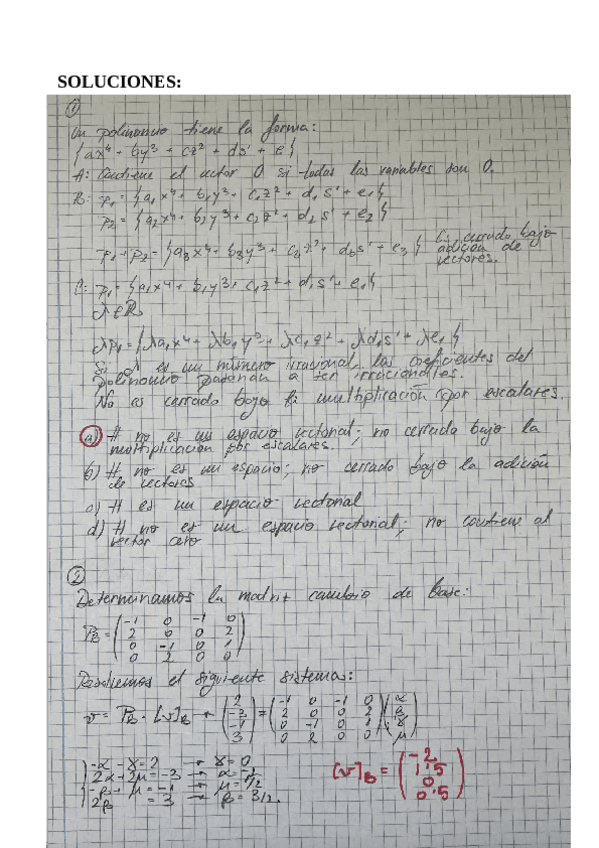 SOLUCIONES:
①
Un polinomio tiene la forma:
{ax⁴ + by³ + cz² + ds' + e}
A: Contiene el vector 0 si todas las variables son 0.
B: p₁ = {a₁x⁴ + b₁y³ + c₁z² + d₁s' + e₁}
p₂ = {a₂x⁴ + b₂y³ + c₂z² + d₂s' + e₂}
p₁ + p₂ = {a₃x⁴ + b₃y³ + c₃z² + d₃s' + e₃} Es cerrado bajo
adición de
vectores.
C: p₁ = {a₁x⁴ + b₁y³ + c₁z² + d₁s' + e₁}
λ∈ℝ
λp₁ = {λa₁x⁴ + λb₁y³ + λc₁z² + λd₁s' + λe₁}
Si λ es un número irracional, las coeficientes del
polinomio pasarán a ser irracionales.
No es cerrado bajo la multiplicación por escalares.
a) H no es un espacio vectorial; no cerrada bajo la
multiplicación por escalares.
b) H no es un espacio; no cerrado bajo la adición
de vectores
c) H es un espacio vectorial
d) H no es un espacio vectorial; no contiene al
vector cero
②
Determinamos la matriz cambio de base:
P_B = (-1 0 -1 0
2 0 0 2
0 -1 0 1
0 2 0 0)
Resolvemos el siguiente sistema:
v = P_B · [v]_B → (2 -3 -1 3) = (-1 0 -1 0
2 0 0 2
0 -1 0 1
0 2 0 0) (α β γ μ)
-α - γ = 2 → γ = 0
2α + 2μ = -3 →
-β + μ = -1 → μ = 1/2
2β = 3 → β = 3/2.
[v]_B = (-2
1,5
0
0,5)